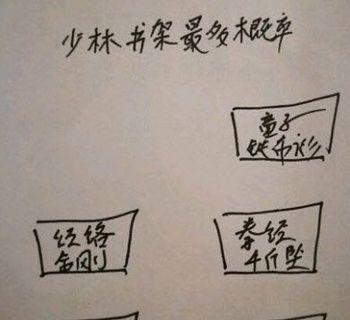 少林书架最多概率
童子
铁布衫
经络
金刚
拳经
千斤坠